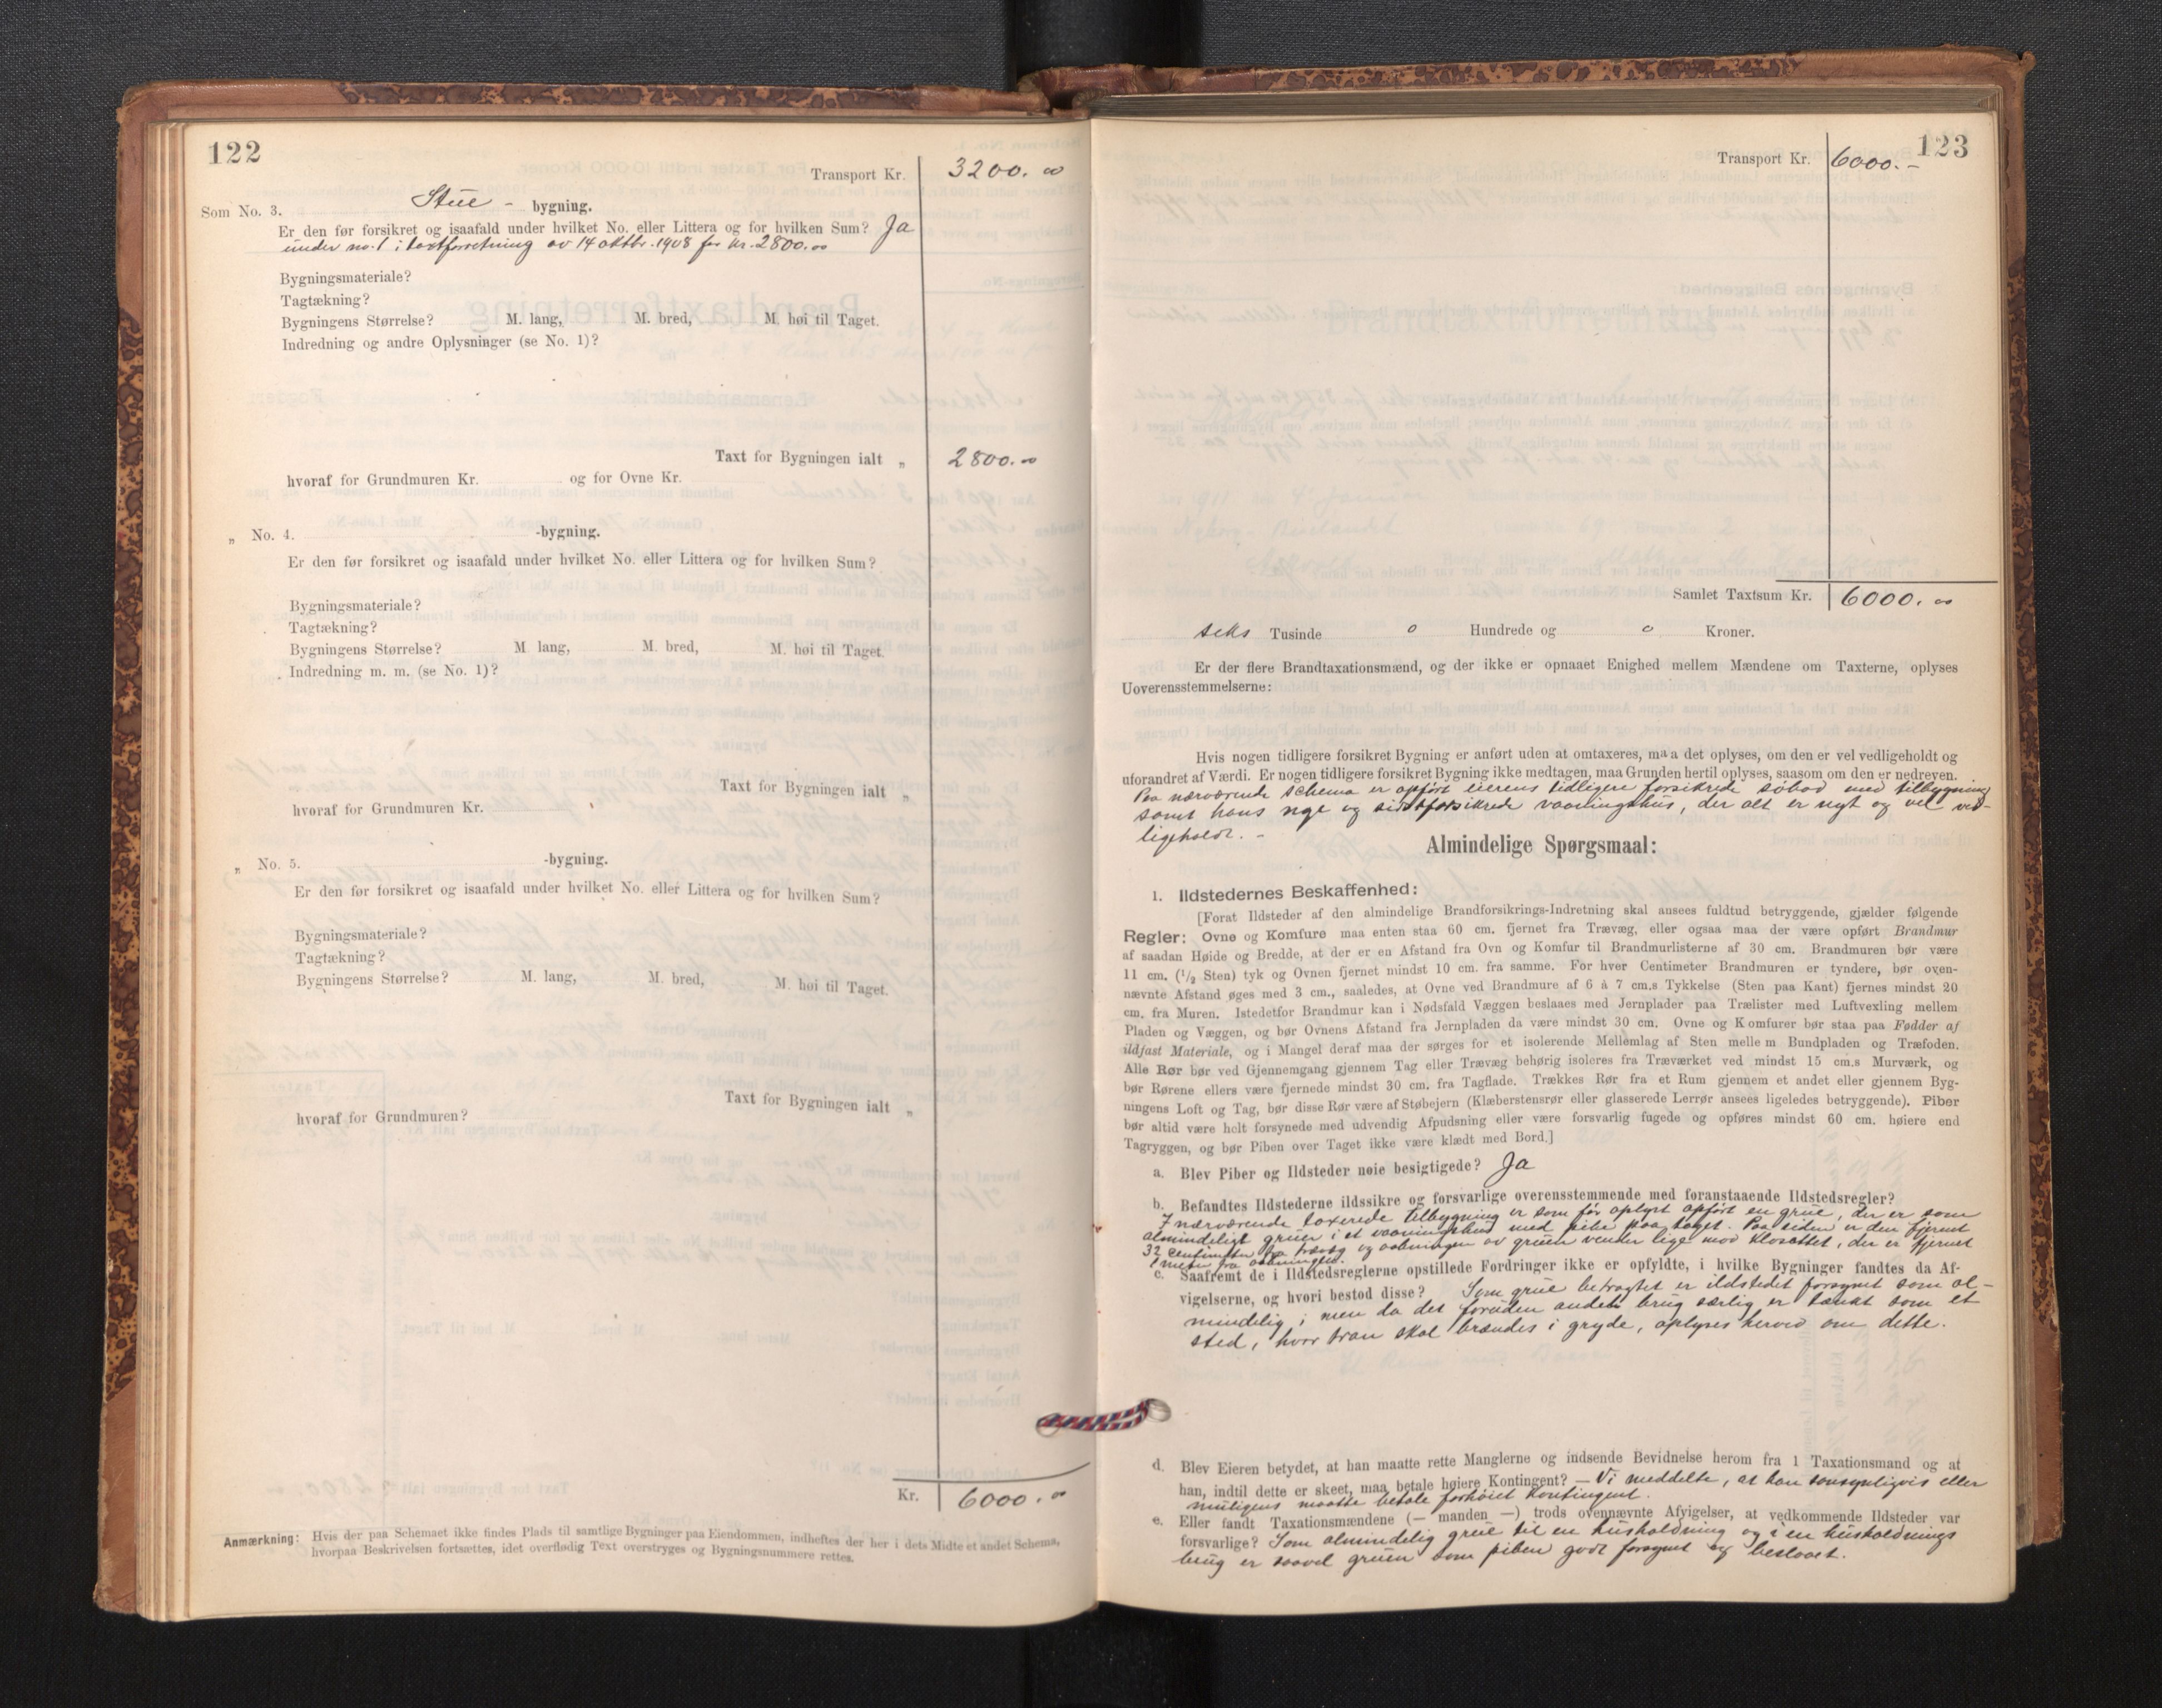 122
Transport Kr. 3200.00
Som No. 3. Stue - bygning.
Er den før forsikret og isaafald under hvilket No. eller Littera og for hvilken Sum? Ja
under no. 1 i taxtforretning av 14 oktbr. 1908 for kr. 2800.00
Bygningsmateriale?
Tagtækning?
Bygningens Størrelse? M. lang, M. bred, M. høi til Taget.
Indredning og andre Oplysninger (se No. 1)?
Taxt for Bygningen ialt „ 2800.00
hvoraf for Grundmuren Kr. og for Ovne Kr.
„ No. 4. -bygning.
Er den før forsikret og isaafald under hvilket No. eller Littera og for hvilken Sum?
Bygningsmateriale?
Tagtækning?
Bygningens Størrelse? M. lang, M. bred, M. høi til Taget.
Indredning m. m. (se No. 1)?
Taxt for Bygningen ialt „
hvoraf for Grundmuren Kr.
„ No. 5. -bygning.
Er den før forsikret og isaafald under hvilket No. eller Littera og for hvilken Sum?
Bygningsmateriale?
Tagtækning?
Bygningens Størrelse? M. lang, M. bred, M. høi til Taget.
Taxt for Bygningen ialt „
hvoraf for Grundmuren?
Kr. 6000.00
Anmærkning: Hvis der paa Schemaet ikke findes Plads til samtlige Bygninger paa Eiendommen, indheftes der her i dets Midte et andet Schema,
hvorpaa Beskrivelsen fortsættes, idet overflødig Text overstryges og Bygningsnummere rettes.
123
Transport Kr. 6000.-
Samlet Taxtsum Kr. 6000.00
seks Tusinde 0 Hundrede og 0 Kroner.
Er der flere Brandtaxationsmænd, og der ikke er opnaaet Enighed mellem Mændene om Taxterne, oplyses
Uoverensstemmelserne:
Hvis nogen tidligere forsikret Bygning er anført uden at omtaxeres, maa det oplyses, om den er vel vedligeholdt og
uforandret af Værdi. Er nogen tidligere forsikret Bygning ikke medtagen, maa Grunden hertil oplyses, saasom om den er nedreven.
Paa nærværende schema er opført eierens tidligere forsikrede søbod med tilbygning
samt hans nye og sidstforsikrede vaaningshus, der alt er nyt og vel ved-
ligeholdt. -
Almindelige Spørgsmaal:
1. Ildstedernes Beskaffenhed:
[Forat Ildsteder af den almindelige Brandforsikrings-Indretning skal ansees fuldtud betryggende, gjælder følgende
Regler: Ovne og Komfure maa enten staa 60 cm. fjernet fra Trævæg, eller ogsaa maa der være opført Brandmur
af saadan Høide og Bredde, at der er en Afstand fra Ovn og Komfur til Brandmurlisterne af 30 cm. Brandmuren bør være
11 cm. (1/2 Sten) tyk og Ovnen fjernet mindst 10 cm. fra samme. For hver Centimeter Brandmuren er tyndere, bør oven-
nævnte Afstand øges med 3 cm., saaledes, at Ovne ved Brandmure af 6 á 7 cm.s Tykkelse (Sten paa Kant) fjernes mindst 20
cm. fra Muren. Istedetfor Brandmur kan i Nødsfald Væggen beslaaes med Jernplader paa Trælister med Luftvexling mellem
Pladen og Væggen, og bør Ovnens Afstand fra Jernpladen da være mindst 30 cm. Ovne og Komfurer bør staa paa Fødder af
ildfast Materiale, og i Mangel deraf maa der sørges for et isolerende Mellemlag af Sten mellem Bundpladen og Træfoden.
Alle Rør bør ved Gjennemgang gjennem Tag eller Trævæg behørig isoleres fra Træværket ved mindst 15 cm.s Murværk, og
bør Rørene ellers være fjernede mindst 30 cm. fra Tagflade. Trækkes Rør fra et Rum gjennem et andet eller gjennem Byg-
ningens Loft og Tag, bør disse Rør være af Støbejern (Klæberstensrør eller glasserede Lerrør ansees ligeledes betryggende). Piber
bør altid være helt forsynede med udvendig Afpudsning eller være forsvarlig fugede og opføres mindst 60 cm. høiere end
Tagryggen, og bør Piben over Taget ikke være klædt med Bord.]
a. Blev Piber og Ildsteder nøie besigtigede? Ja
b. Befandtes Ildstederne ildssikre og forsvarlige overensstemmende med foranstaaende Ildstedsregler?
I nærværende taxerede tilbygning er som før oplyst opført en grue, der er som
almindeligt gruer i et vaaningshus med pibe paa taget. Paa siden er den fjernet
32 centimeter fra trævæg og aabningen av gruen vender lige mod klosettet, der er fjernet
1 meter fra aabningen.
c. Saafremt de i Ildstedsreglerne opstillede Fordringer ikke er opfyldte, i hvilke Bygninger fandtes da Af-
vigelserne, og hvori bestod disse? Som grue betragtet er ildstedet forsynet som al-
mindelig, men da det foruden andet brug særlig er tænkt som et
sted, hvor tran skal brændes i gryde, oplyses herved om dette.
d. Blev Eieren betydet, at han maatte rette Manglerne og indsende Bevidnelse herom fra 1 Taxationsmand og at
han, indtil dette er skeet, maa betale høiere Kontingent? - Vi meddelte, at han sansynligvis eller
muligens maatte betale forhøiet kontingent.
e. Eller fandt Taxationsmændene (— manden —) trods ovennævnte Afvigelser, at vedkommende Ildsteder var
forsvarlige? Som almindelig grue til en husholdning og i en husholdnings
brug er saavel gruen som piben godt forsynet og beslaaet.